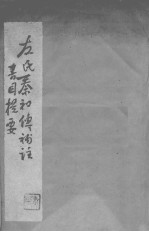 左氏春秋傳補註
書目提要